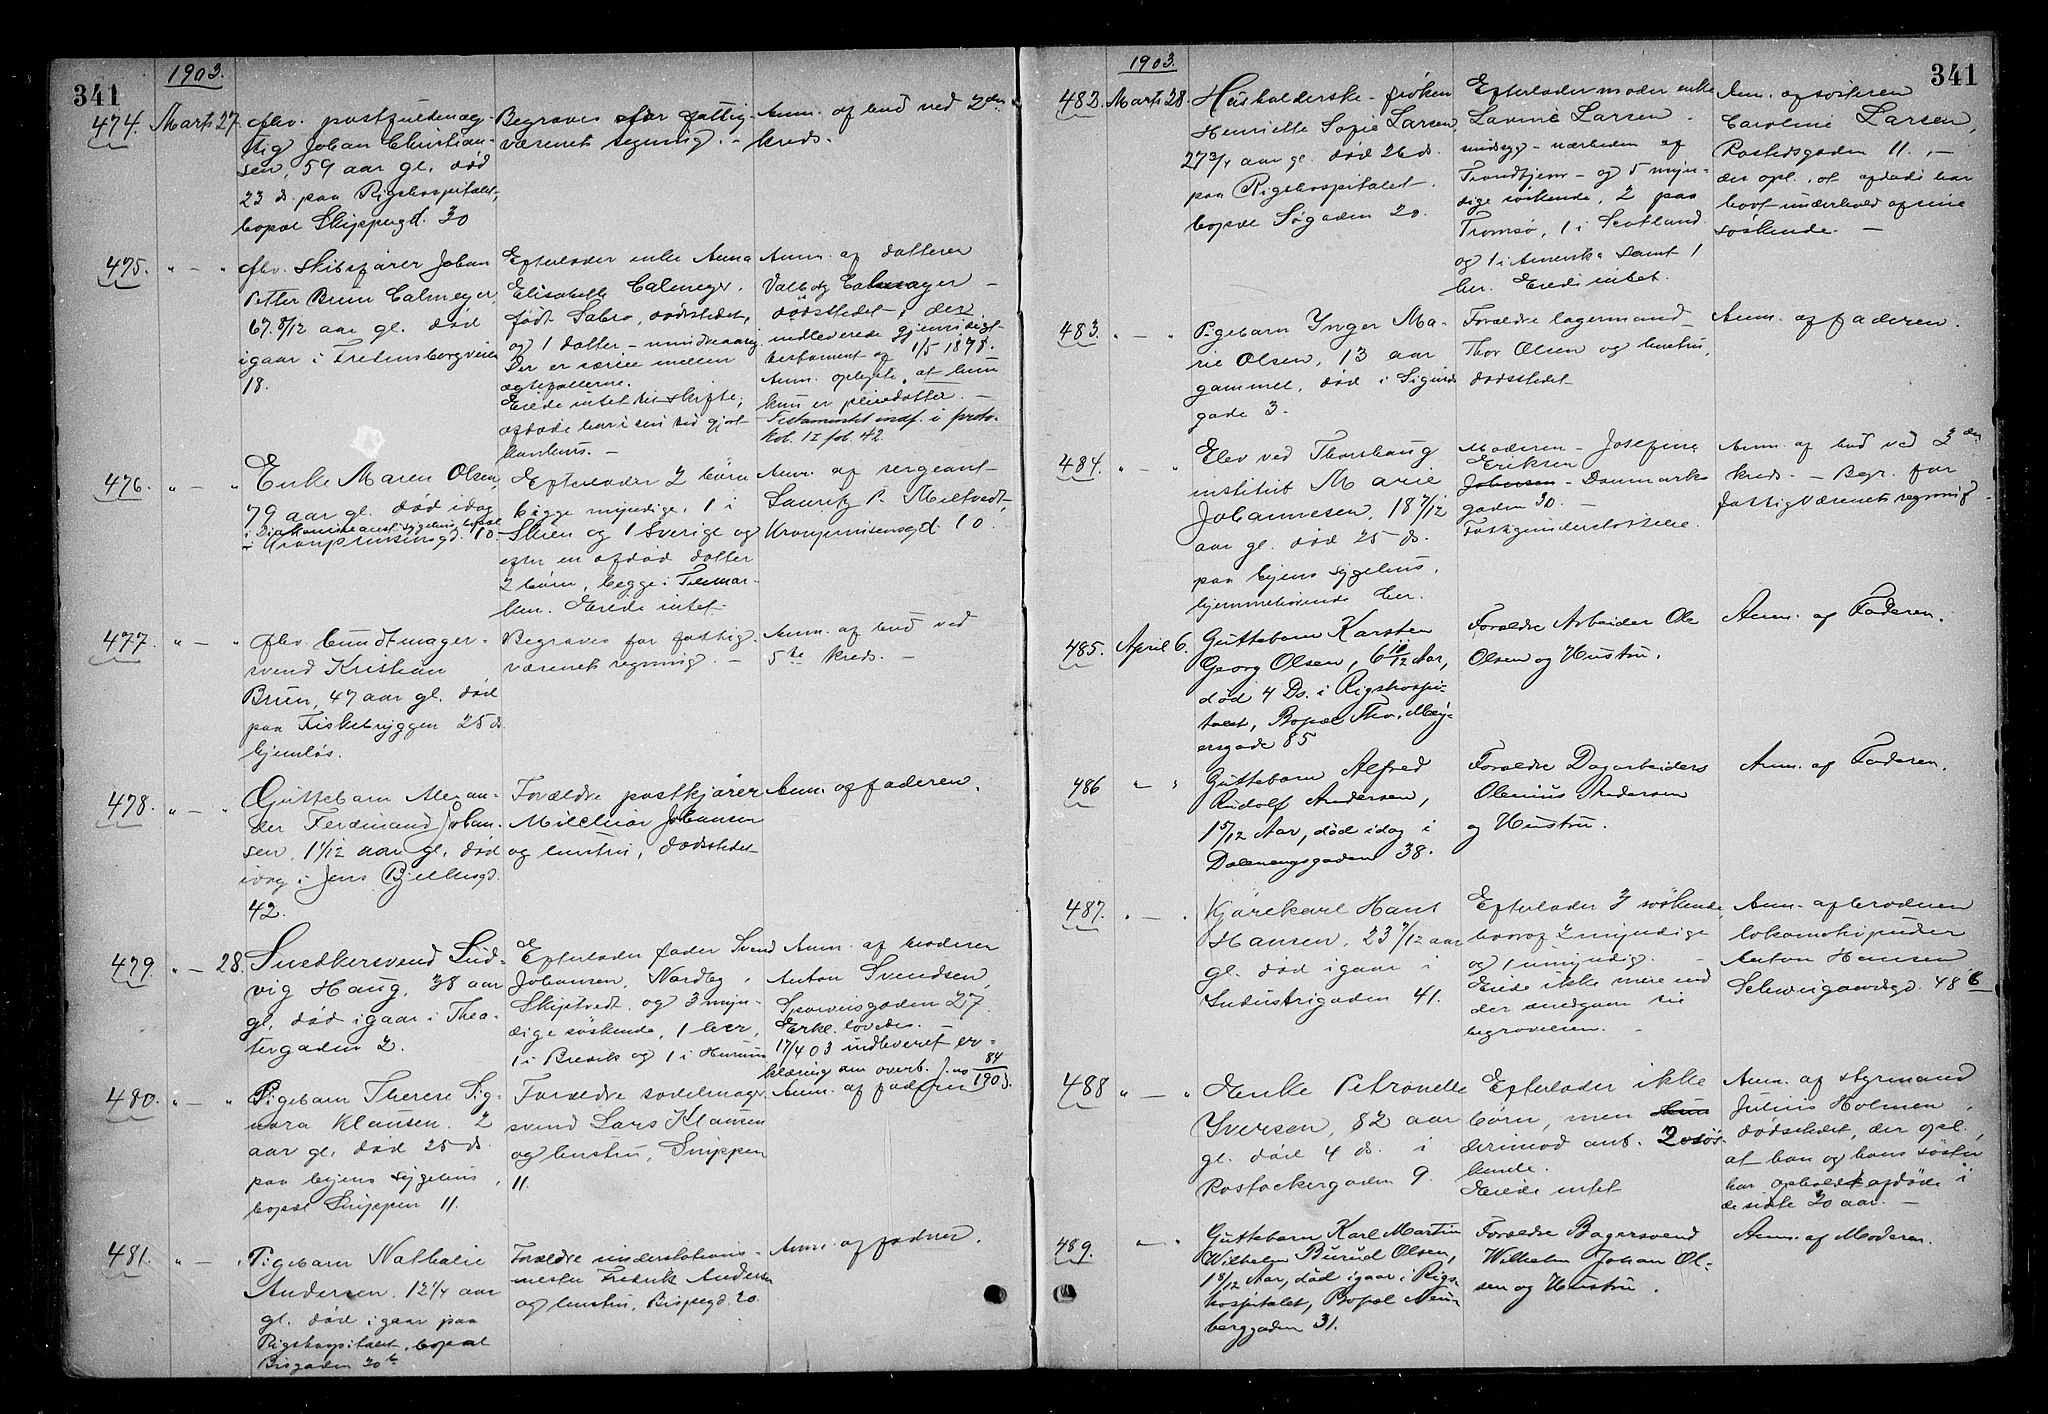 341
1903.
474. Marts 27. fhv. postfuldmæg-
tig Johan Christian-
sen, 59 aar gl. død
23 ds paa Rigshospitalet,
bopæl Skippergd. 30
Begraves for fattig-
væsenets regning. -
Anm. af bud ved 2den
kreds. -
475. " - " fhv. skibsfører Johan
Petter Bruun Calmeyer,
67 8/12 aar gl. død
igaar i Fredensborgveien
18.
Efterlader enke Anna
Elisabeth Calmeyer,
født Sabro, dødsstedet,
og 1 datter - umyndig
Der er særeie mellem
ægtefællerne.
Eiede intet til skifte;
afdøde har i sin tid gjort
konkurs. -
Anm. af datteren
Valborg Calmeyer -
dødsstedet, der
indleverede gjensidigt
testament af 1/5 1878.
Anm. oplyste, at hun
kun er pleiedatter. -
Testamentet indf. i proto-
kol II fol. 42.
476. " - " Enke Maren Olsen,
79 aar gl. død idag
i Diakonisseanst. sygehus, bopæl
i Kronprinsensgd. 10.
Efterlader 2 børn
begge myndige, 1 i
Skien og 1 Sverige og
efter en afdød datter
2 børn, begge i Telemar-
ken. Eiede intet
Anm. af sergeant
Lauritz P. Miltvedt,
Kronprinsensgd. 10.
477. " - " fhv. bundtmager-
svend Kristian
Bruun, 47 aar gl. død
paa Fiskebryggen 25 ds
hjemløs.
Begraves for fattig-
væsenets regning. -
Anm. af bud ved
5te kreds. -
478. " - " Guttebarn Alexan-
der Ferdinand Johan-
sen, 1 1/12 aar gl. død
idag i Jens Bjelkesgd.
42.
Forældre postkjører
Milchior Johansen
og hustru, dødsstedet
Anm. af faderen.
479. " - 28. Snedkersvend Lud-
vig Haug, 38 aar
gl. død igaar i Thea-
tergaden 2.
Efterlader fader Svend
Johansen, Nordby,
Skiptvedt og 3 myn-
dige søskende, 1 her,
1 i Brevik og 1 i Hurum
Anm. af broderen
Anton Svendsen,
Sporveisgaden 27.
Erkl. lovedes. -
17/4 03 indleveret er-
klæring om overt. J. no 84/1903.
480. " - " Pigebarn Therese Sig-
nora Klausen, 2
aar gl. død 25 ds.
paa byens sygehus,
bopæl Snippen 11.
Forældre sadelmager-
svend Lars Klausen
og hustru, Snippen
11.
Anm. af faderen
481. " - " Pigebarn Nathalie
Andersen, 12 1/4 aar
gl. død igaar paa
Rigshospitalet, bopæl
Bispgaden 20b
Forældre understations-
mester Fredrik Andersen
og hustru, Bispegd. 20.
Anm. af faderen.
341
1903.
482. Marts 28. Husholderske - frøken
Henriette Sofie Larsen,
27 3/4 aar gl. død 26 ds.
paa Rigshospitalet.
bopæl Søgaden 20.
Efterlader moder enke
Lovise Larsen -
sindssyg - nærheden af
Trondhjem - og 5 myn-
dige søskende, 2 paa
Tromsø, 1 i Scotland
og 1 i Amerika samt 1
her. Eiede intet.
Anm. af søsteren
Caroline Larsen,
Rostedsgaden 11, -
der opl., at afdøde har
havt underhold af sine
søskende. -
483. " - " Pigebarn Ynger Ma-
rie Olsen, 13 aar
gammel, død i Sigurds
gade 3.
Forældre lagermand
Thor Olsen og hustru,
dødsstedet
Anm. af faderen.
484. " - " Elev ved Thorshaug
institut Marie
Johannesen, 18 7/12
aar gl. død 25 ds.
paa byens sygehus,
hjemmehørende her.
Moderen - Josefine
Eriksen
Johansen - Danmarks
gaden 30. -
Fattigunderstøttelse.
Anm. af bud ved 3den
kreds. - Begr. for
fattigvæsenets regning. -
485. April 6. Guttebarn Karsten
Georg Olsen, 6 10/12 Aar,
død 4 Ds. i Rigshospi-
talet, Bopæl Thv. Mey-
ersgade 85
Forældre Arbeider Ole
Olsen og Hustru.
Anm. af Faderen.
486 " - " Guttebarn Alfred
Rudolf Andersen,
1 5/12 Aar, død idag i
Dælenenggaden 38.
Forældre Dagarbeider
Olenius Andersen
og Hustru.
Anm. af Faderen.
487. " - " Kjørekarl Hans
Hansen, 23 7/12 aar
gl. død igaar i
Industrigaden 41.
Efterlader 3 søskende
hvoraf 2 myndige
og 1 umyndig. -
Eiede ikke mere end
der medgaar til
begravelsen. -
Anm. af broderen
lokomotivpudser
Anton Hansen
Schweigaardsgd. 48 b
488 " - " Enke Petronelle
Iversen, 82 aar
gl. død 4 ds. i
Rostockergaden 9.
Efterlader ikke
børn, men
derimod ant. 2 søs-
kende.
Eiede intet
Anm. af styrmand
Julius Holmen,
dødsstedet, der opl.,
at han og hans søster
har opholdt afdøde i
de sidste 20 aar. -
489. " - " Guttebarn Karl Martin
Wilhelm Burud Olsen,
1 8/12 Aar, død igaar i Rigs-
hospitalet, Bopæl Neu-
berggaden 31.
Forældre Bagersvend
Wilhelm Johan Ol-
sen og Hustru.
Anm. af Moderen.